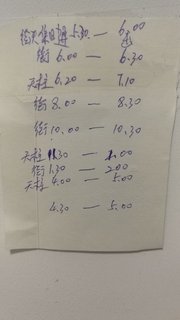 街天集日進 5.30 — 6.00
街 6.00 — 6.30
天柱 6.20 — 7.10
街 8.00 — 8.30
街 10.00 — 10.30
天柱 1.30 — 2.00
街 1.30 — 2.00
天柱 4.00 — 5.00
4.30 — 5.00